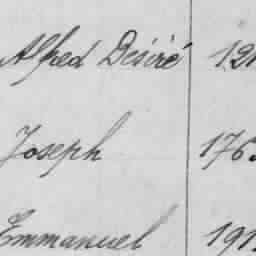 Alfred Désiré
Joseph 176
Emmanuel 191